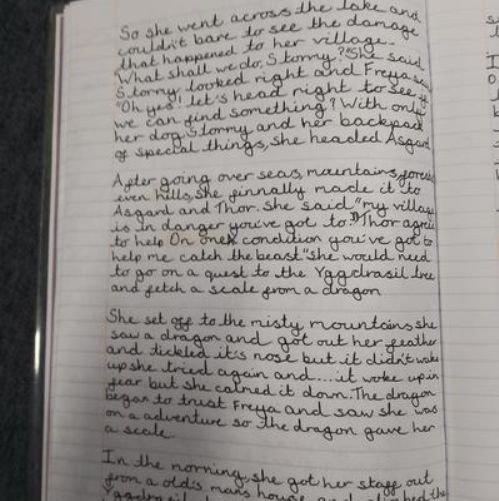 So she went across the lake and
couldn't bare to see the damage
that happened to her village.
"What shall we do, Stormy?" She said
Stormy looked right and Freya saw
"Oh yes! let's head right to see if
we can find something? With only
her dog, Stormy and her backpack
of special things, she headed Asgard
After going over seas, mountains, forests
even hills, she finnally made it to
Asgard and Thor. She said "my village
is in danger you've got to." Thor agreed
to help On one condition you've got to
help me catch the beast" she would need
to go on a quest to the Yggdrasil tree
and fetch a scale from a dragon
She set off to the misty mountains she
saw a dragon and got out her feather
and tickled it's nose but it didn't wake
up she tried again and....it woke up in
fear but she calmed it down. The dragon
began to trust Freya and saw she was
on a adventure so the dragon gave her
a scale.
In the morning, she got her staff out
from a old's mans house and climbed the
Yggdrasil